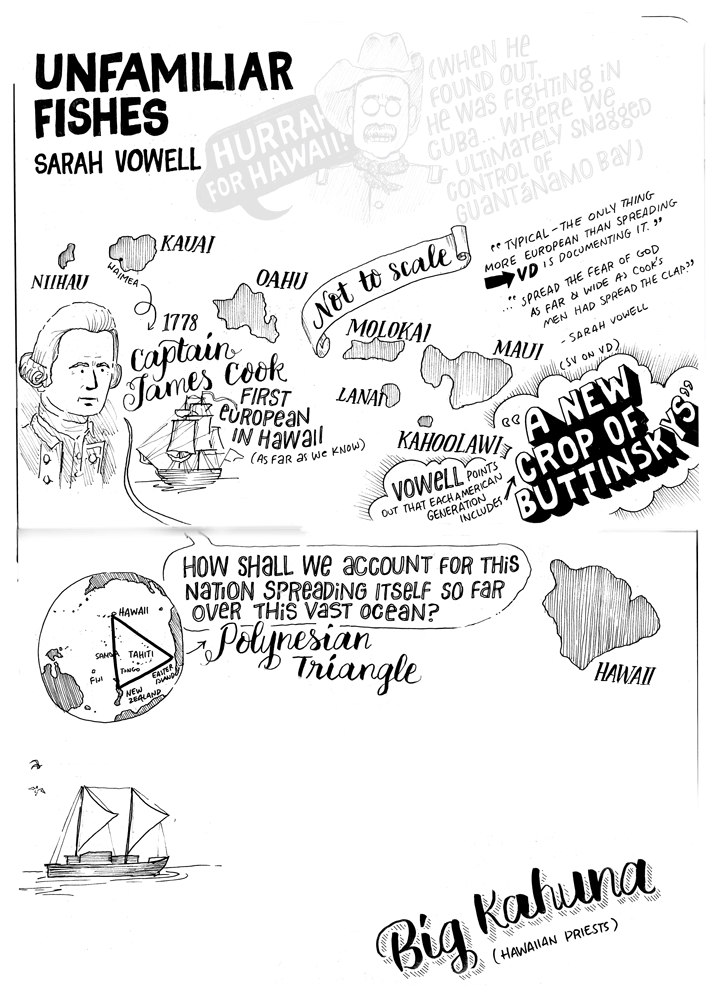 UNFAMILIAR
FISHES
SARAH VOWELL
HURRAH
FOR HAWAII!
(WHEN HE
FOUND OUT,
HE WAS FIGHTING IN
CUBA... WHERE WE
ULTIMATELY SNAGGED
CONTROL OF
GUANTÁNAMO BAY)
NIIHAU
KAUAI
WAIMEA
OAHU
Not to scale
"TYPICAL - THE ONLY THING
MORE EUROPEAN THAN SPREADING
VD IS DOCUMENTING IT."
..." SPREAD THE FEAR OF GOD
AS FAR & WIDE AS COOK'S
MEN HAD SPREAD THE CLAP."
- SARAH VOWELL
(SV ON VD)
1778
Captain
James Cook
FIRST
EUROPEAN
IN HAWAII
(AS FAR AS WE KNOW)
MOLOKAI
MAUI
LANAI
KAHOOLAWI
VOWELL POINTS
OUT THAT EACH AMERICAN
GENERATION
INCLUDES
"A NEW
CROP OF
BUTTINSKYS"
HOW SHALL WE ACCOUNT FOR THIS
NATION SPREADING ITSELF SO FAR
OVER THIS VAST OCEAN?
Polynesian
Triangle
HAWAII
TAHITI
FIJI
EASTER
ISLAND
NEW
ZEALAND
HAWAII
Big Kahuna
(HAWAIIAN PRIESTS)